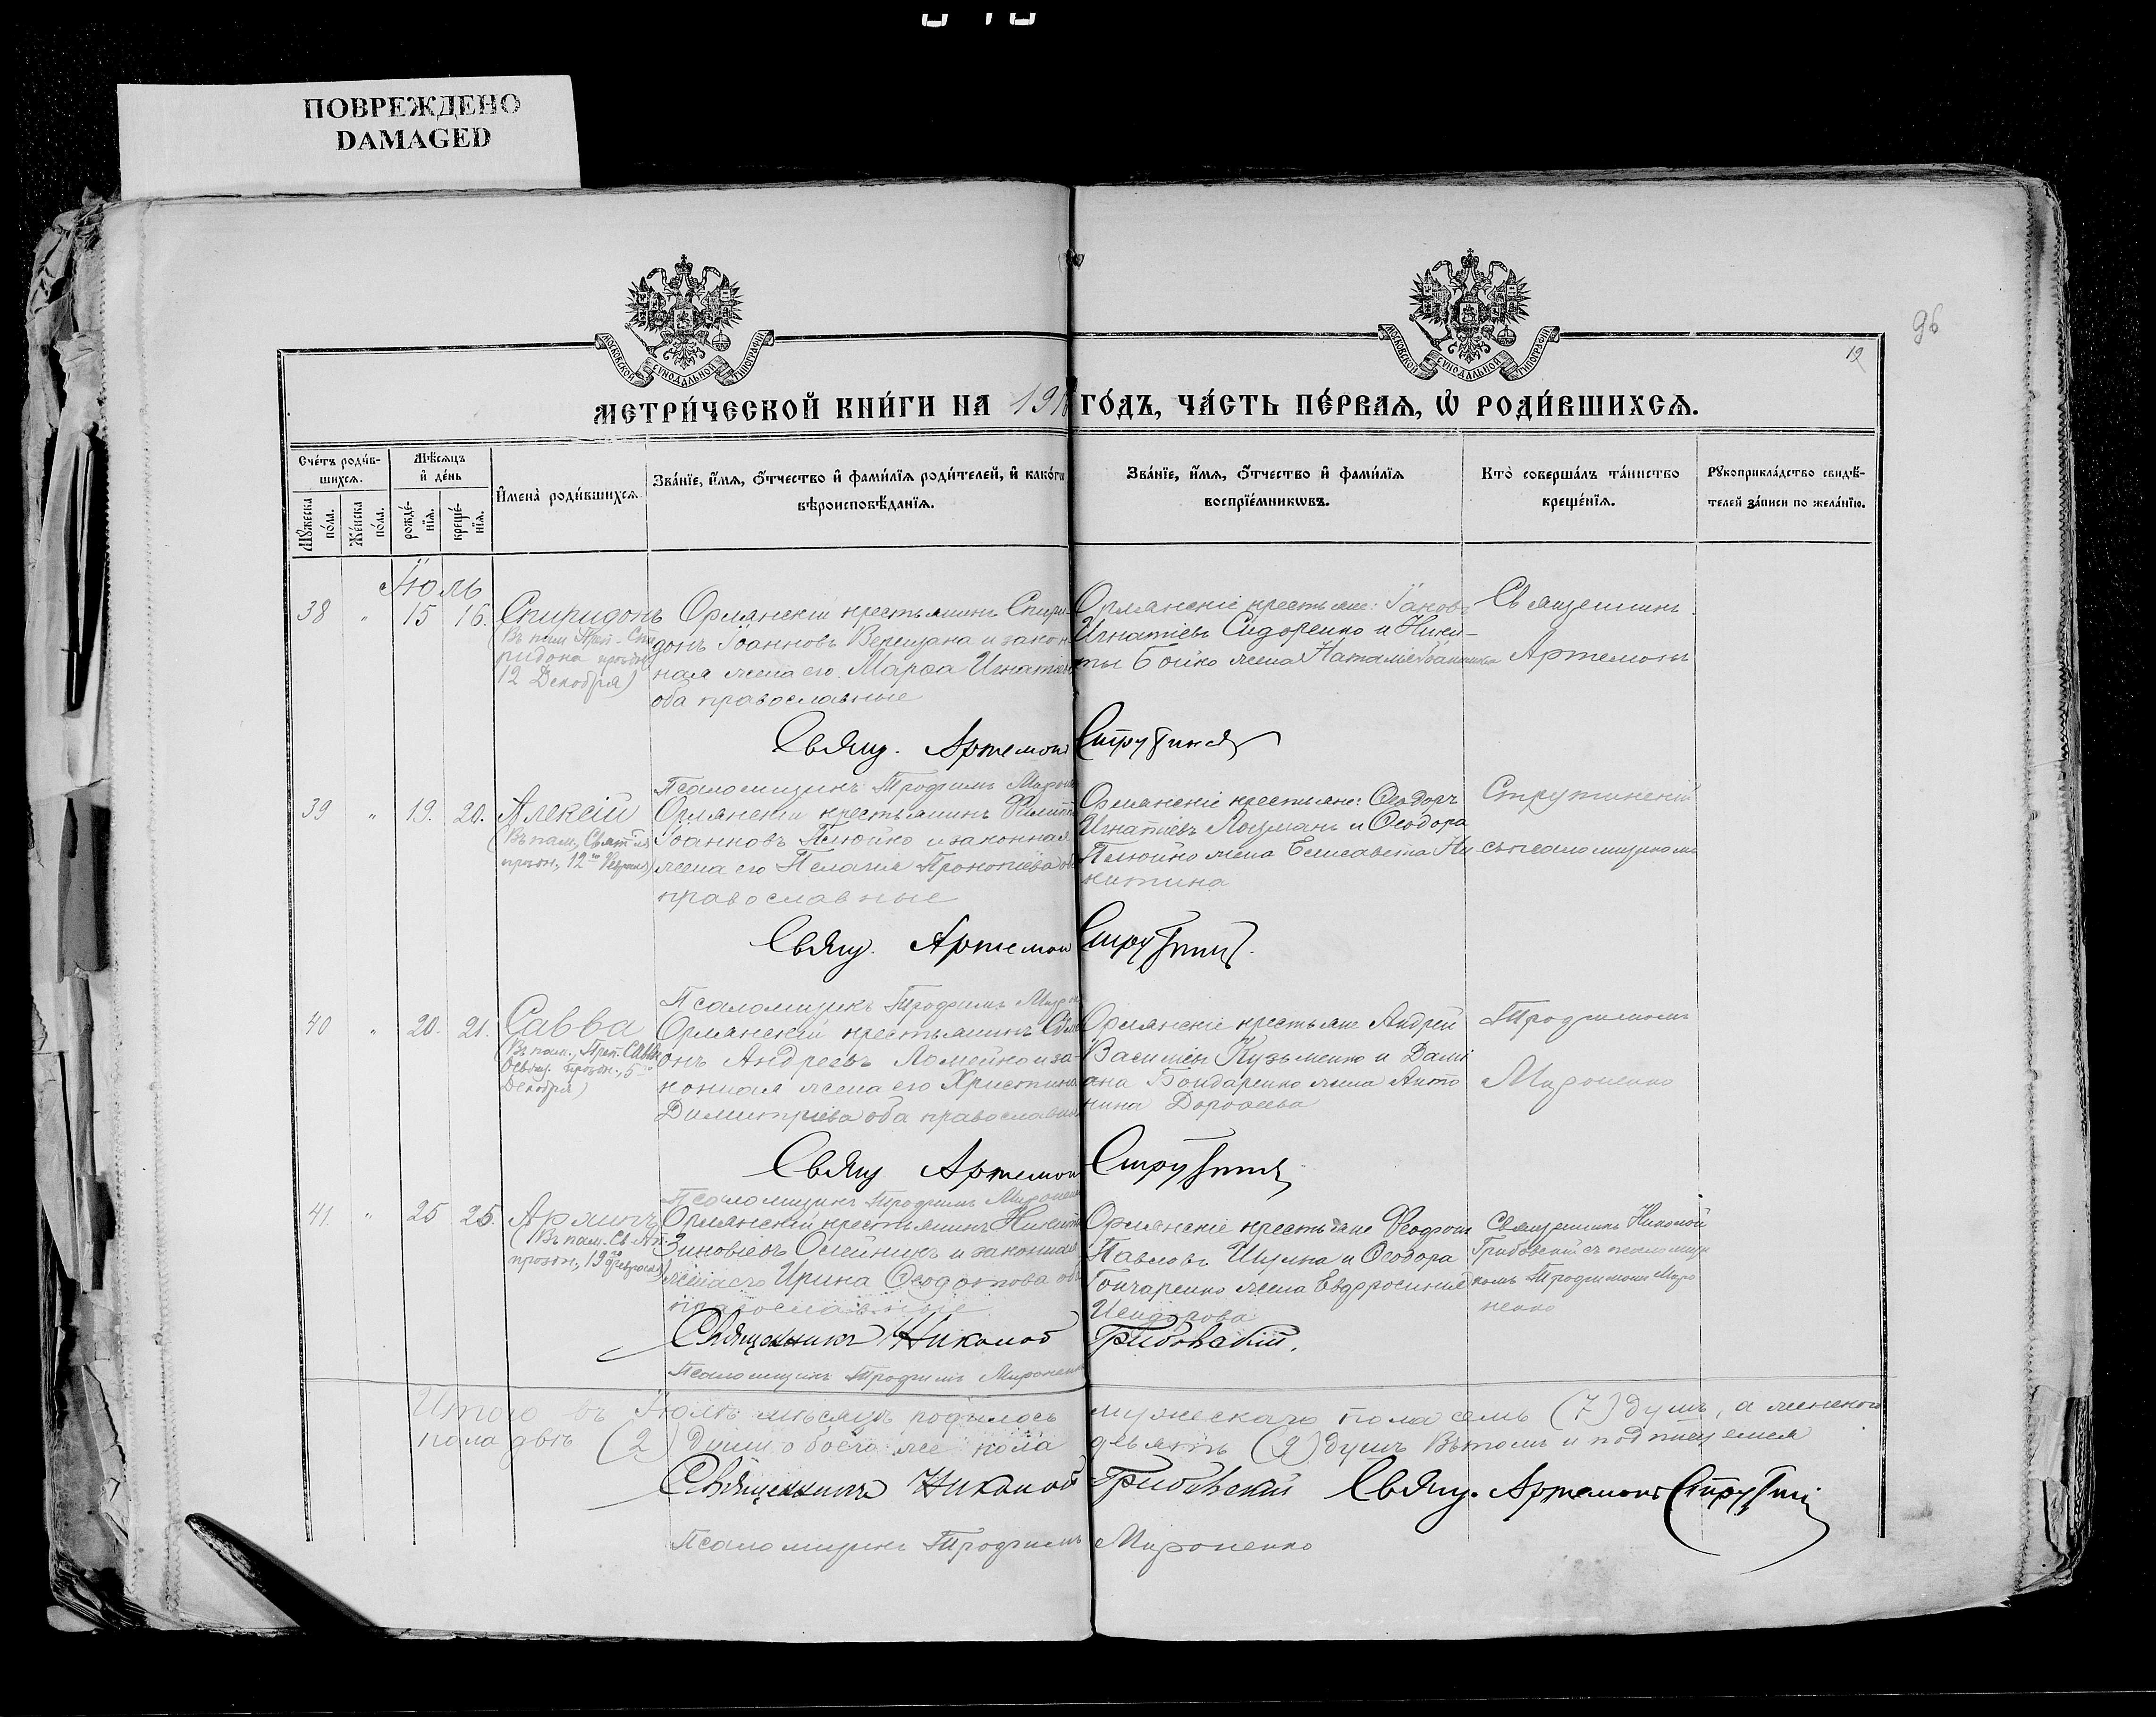 ПОВРЕЖДЕНО
DAMAGED
96
12
МОСКОВСКОЙ СУНОДАЛЬНОЙ ТИПОГРАФІИ
МОСКОВСКОЙ СУНОДАЛЬНОЙ ТИПОГРАФІИ
МЕТРИ́ЧЕСКОЙ КНИ́ГИ НА 191 ГО́ДЪ, ЧА́СТЬ ПЕ́РВАЯ, Ѡ РОДИ́ВШИХСЯ.
Сче́тъ роди́в-
шихся.
Мѣ́сяцъ
и де́нь
Мꙋ́жеска
по́ла.
Же́нска
по́ла.
рожде́-
нїя.
креще́-
нїя.
Имена̀ роди́вшихся.
Зва́нїе, и́мя, о́тчество и фами́лїя роди́телей, и како́гѡ
вѣроисповѣ́данїя.
Зва́нїе, и́мя, о́тчество и фами́лїя
воспрїе́мникѡвъ.
Кто̀ соверша́лъ та́инство
креще́нїя.
Рꙋкоприкла́дство свидѣ́-
телей за́писи по жела́нїю.
Іюль
38 " 15 16. Спиридонъ
(Въ пам. Преп. Спи
ридона праздн.
12 Декабря)
Орлянскій крестьянинъ Спири-
донъ Іоанновъ Верещака и закон
ная жена его Марѳа Игнатіева
оба православные
Орлянскіе крестьяне: Іаковъ
Игнатіевъ Сидоренко и Ники-
ты Бойко жена Наталія
Священникъ
Артемонъ
Свящ. Артемонъ Струтинскій
Псаломщикъ Трофимъ Мироненко
39 " 19. 20. Алексій
(Въ пам. Святит.
праздн. 12го Февраля)
Орлянскій крестьянинъ Филиппъ
Іоанновъ Плюйко и законная
жена его Пелагія Прокопіева оба
православные
Орлянскіе крестьяне: Ѳеодоръ
Игнатіевъ Лоцманъ и Ѳеодора
Плюйко жена Елисавета Ни
китина
Струтинскій
съ псаломщикомъ
Свящ. Артемонъ Струтинскій
Псаломщикъ Трофимъ Мироненко
40 " 20. 21. Савва
(Въ пам. Преп. Саввы
Освящ. праздн. 5го
Декабря)
Орлянскій крестьянинъ Симе
онъ Андреевъ Ломейко и за-
конная жена его Христина
Димитріева оба православные
Орлянскіе крестьяне Андрей
Василіевъ Кузьменко и Дами
ана Бондаренко жена Анто
нина Дороѳеева
Трофимомъ
Мироненко
Свящ. Артемонъ Струтинскій
Псаломщикъ Трофимъ Мироненко
41. " 25 25. Архипъ
(Въ пам. Св. Ап.
праздн. 19го Февраля)
Орлянскій крестьянинъ Никита
Зиновіевъ Олейникъ и законная
жена его Ирина Ѳеодотова оба
православные
Орлянскіе крестьяне Ѳеофанъ
Павловъ Шульга и Ѳеодора
Гончаренко жена Евфросинія
Исидорова
Священникъ Николай
Грибовскій съ псаломщи
комъ Трофимомъ Миро
ненко
Священникъ Николай Грибовскій.
Псаломщикъ Трофимъ Мироненко
Итого въ Іюлѣ мѣсяцѣ родилось мужескаго пола семь (7) душъ, а женскаго
пола двѣ (2) души обоего же пола девять (9) душъ Въ томъ и подпишемся
Священникъ Николай Грибовскій Свящ. Артемонъ Струтинскій
Псаломщикъ Трофимъ Мироненко